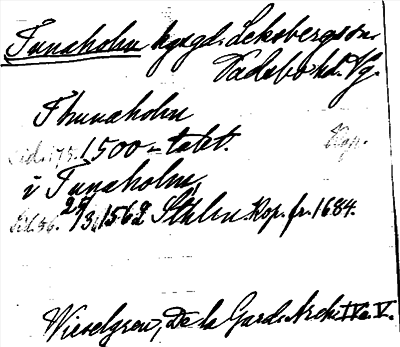 Tunaholm hgsgd. Leksbergs sn.
Vadsbo hd. Vg.
Thunaholm
Sid. 175. 1500-talet. Kop.
i Tunaholm,
Sid. 36. 29/3 1562 Sthlm. Kop. fr. 1684.
Wieselgren, De la Gard. Arch. IV o. V.